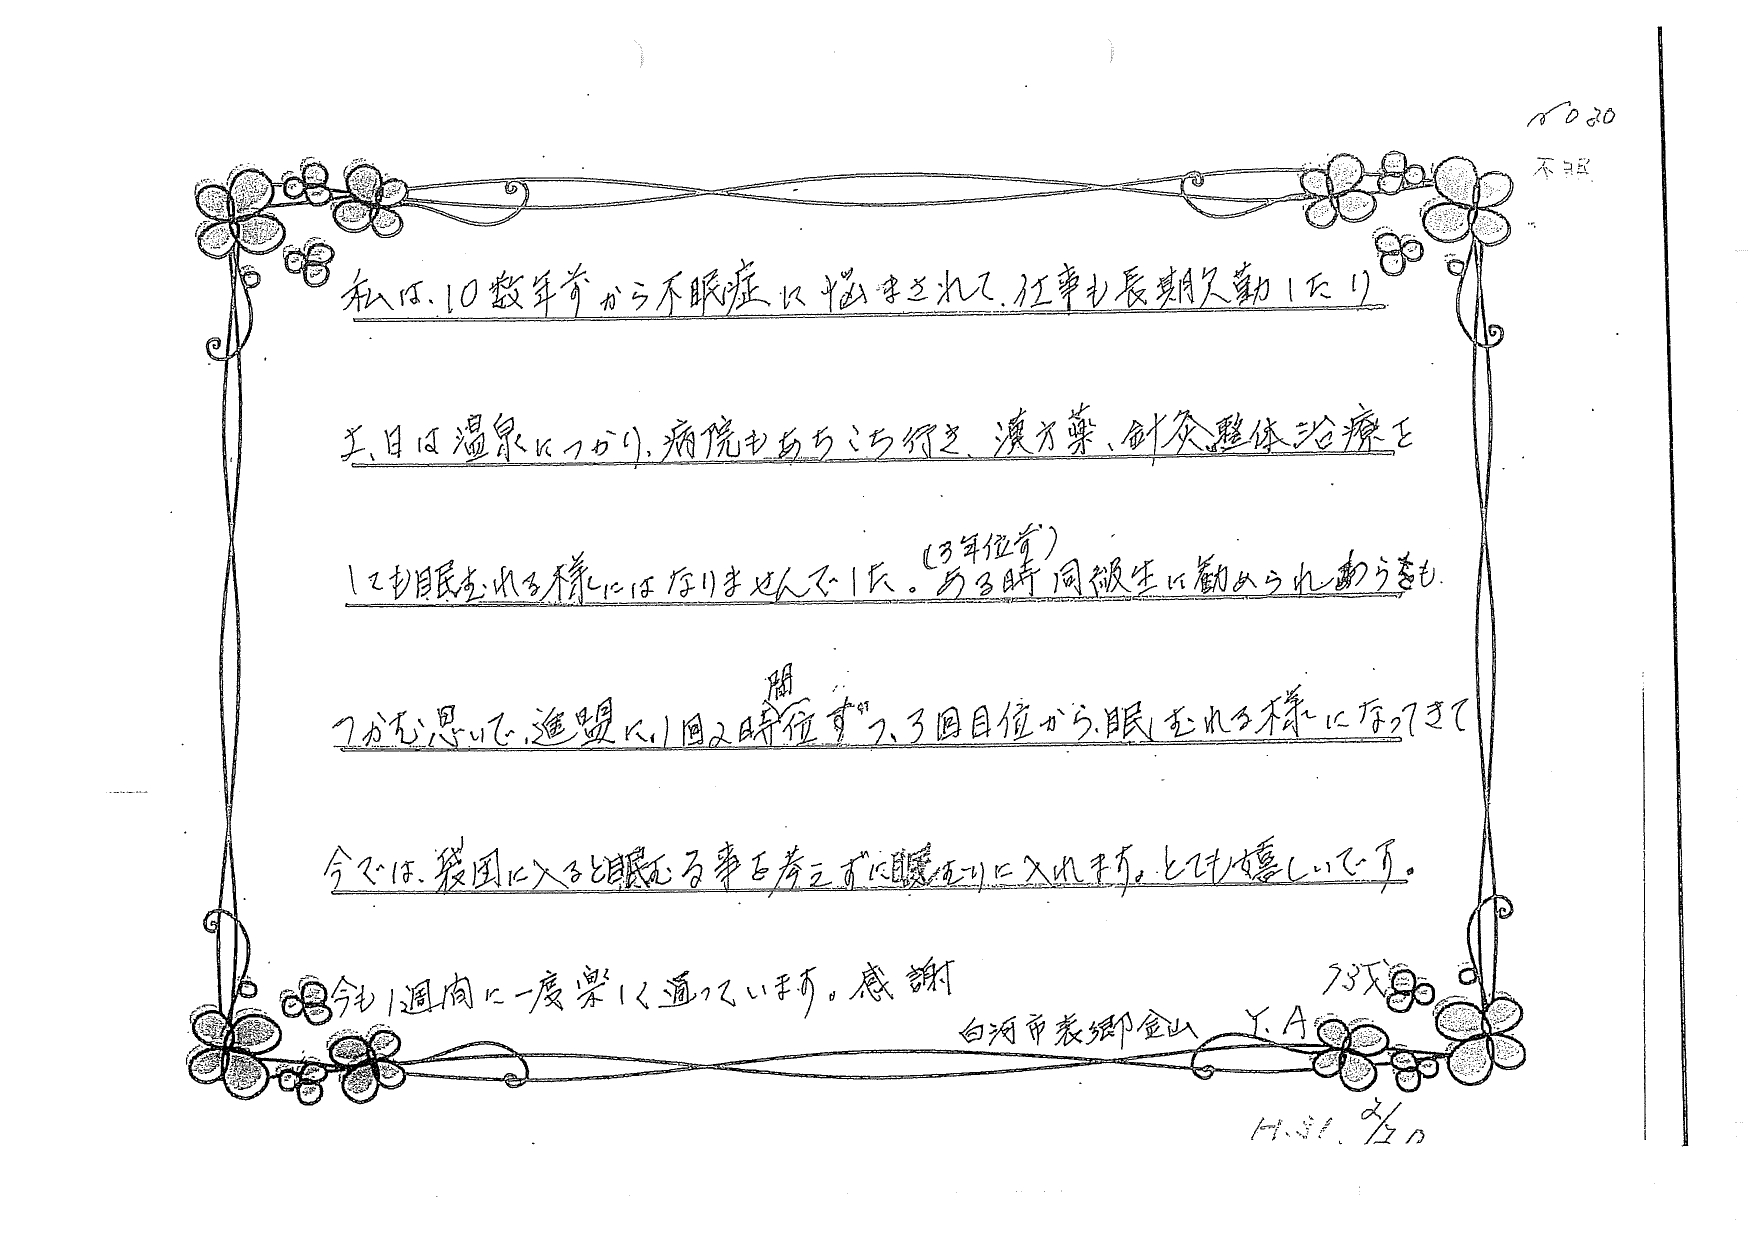 No 20
不眠
私は、10数年前から不眠症に悩まされて、仕事も長期欠勤したり
土、日は温泉につかり、病院もあちこち行き、漢方薬、針灸、整体治療を
しても眠むれる様にはなりませんでした。ある時(3年位前)同級生に勧められ、わらをも
つかむ思いで、進盟に、1回2時間位ずつ、3回目位から、眠むれる様になってきて
今では、袋団に入ると眠むる事を考えずに眠むりに入れます。とても嬉しいです。
今も1週間に一度楽しく通っています。感謝
73才
白河市表郷金山 Y.A
H.31. 2/20